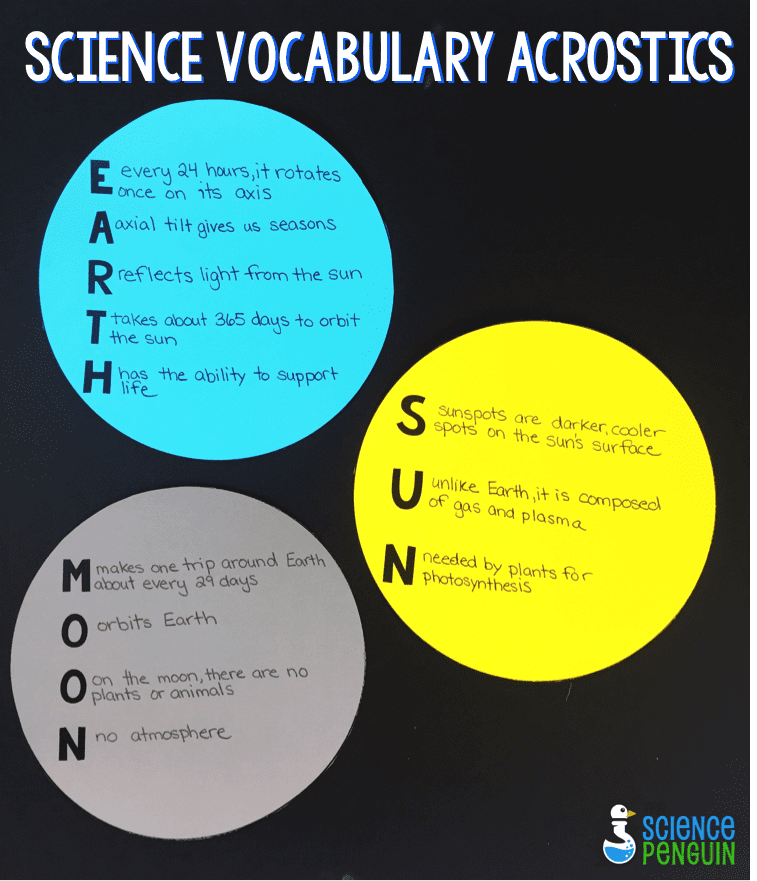 SCIENCE VOCABULARY ACROSTICS
E every 24 hours, it rotates
once on its axis
A axial tilt gives us seasons
R reflects light from the sun
T takes about 365 days to orbit
the sun
H has the ability to support
life
S sunspots are darker, cooler
spots on the sun's surface
U unlike Earth, it is composed
of gas and plasma
N needed by plants for
photosynthesis
M makes one trip around Earth
about every 29 days
O orbits Earth
O on the moon, there are no
plants or animals
N no atmosphere
SCIENCE
PENGUIN